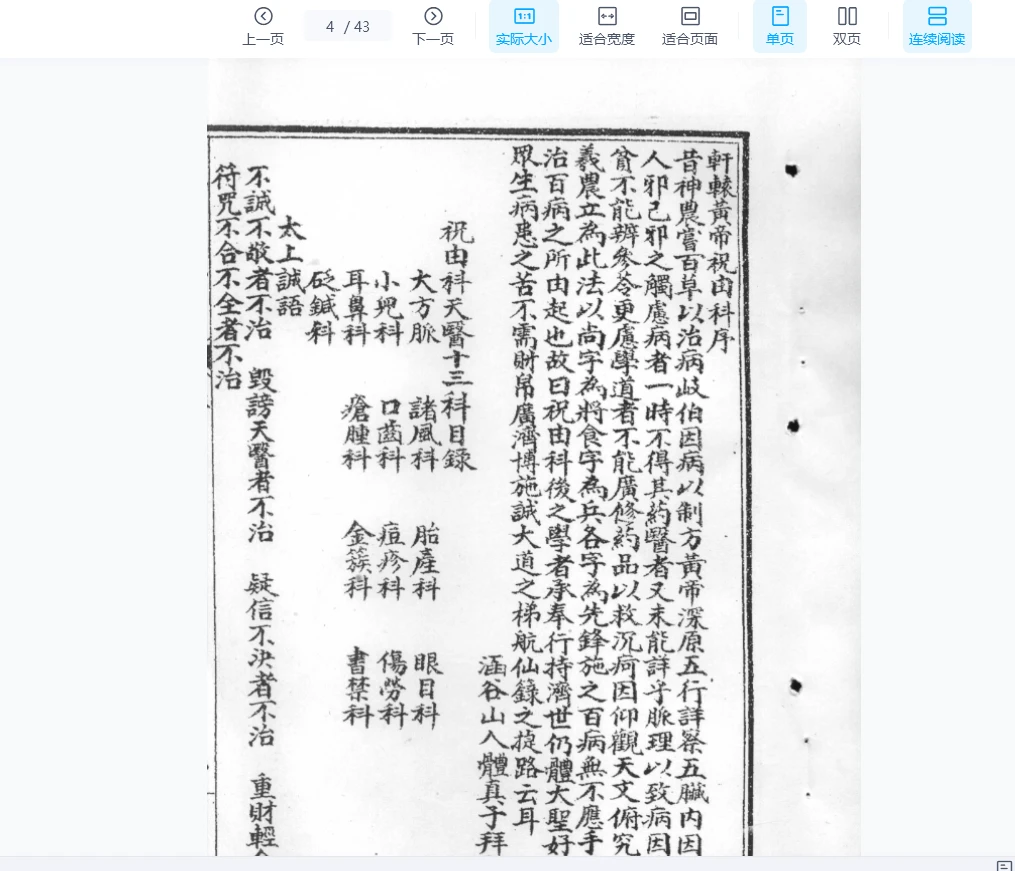 上一页
4 / 43
下一页
1:1
实际大小
适合宽度
适合页面
单页
双页
连续阅读
軒轅黃帝祝由科序
昔神農嘗百草以治病歧伯因病以制方黃帝深原五行詳察五臟內因
人邪己邪之觸慮病者一時不得其药醫者又未能詳于脈理以致病因
貧不能辨參苓更慮學道者不能廣修药品以救沉疴因仰觀天文俯究
羲農立為此法以尚字為將食字為兵各字為先鋒施之百病無不應手
治百病之所由起也故曰祝由科後之學者承奉行持濟世仍體大聖好
眾生病患之苦不需財帛廣濟博施誠大道之梯航仙錄之捷路云耳
涵谷山人體真子拜
祝由科天醫十三科目錄
大方脈 諸風科 胎產科 眼目科
小兒科 口齒科 痘疹科 傷勞科
耳鼻科 瘡腫科 金簇科 書禁科
砭鍼科
太上誡語
不誠不敬者不治 毀謗天醫者不治 疑信不決者不治 重財輕
符咒不合不全者不治